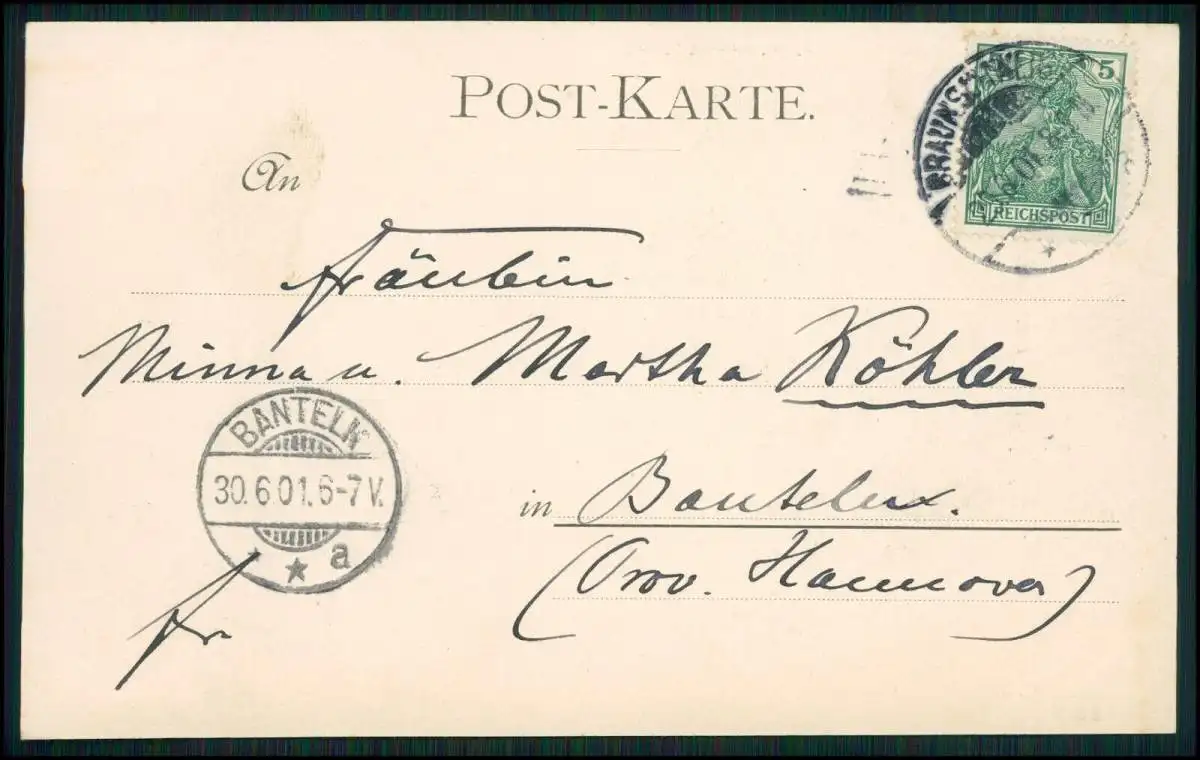 POST-KARTE.
5
BRAUNSCHWEIG
REICHSPOST
An
Fräulein
Minna u. Martha Köhler
BANTELN
30.6.01.6-7V.
a
in Banteln.
(Prov. Hannover)
fr.